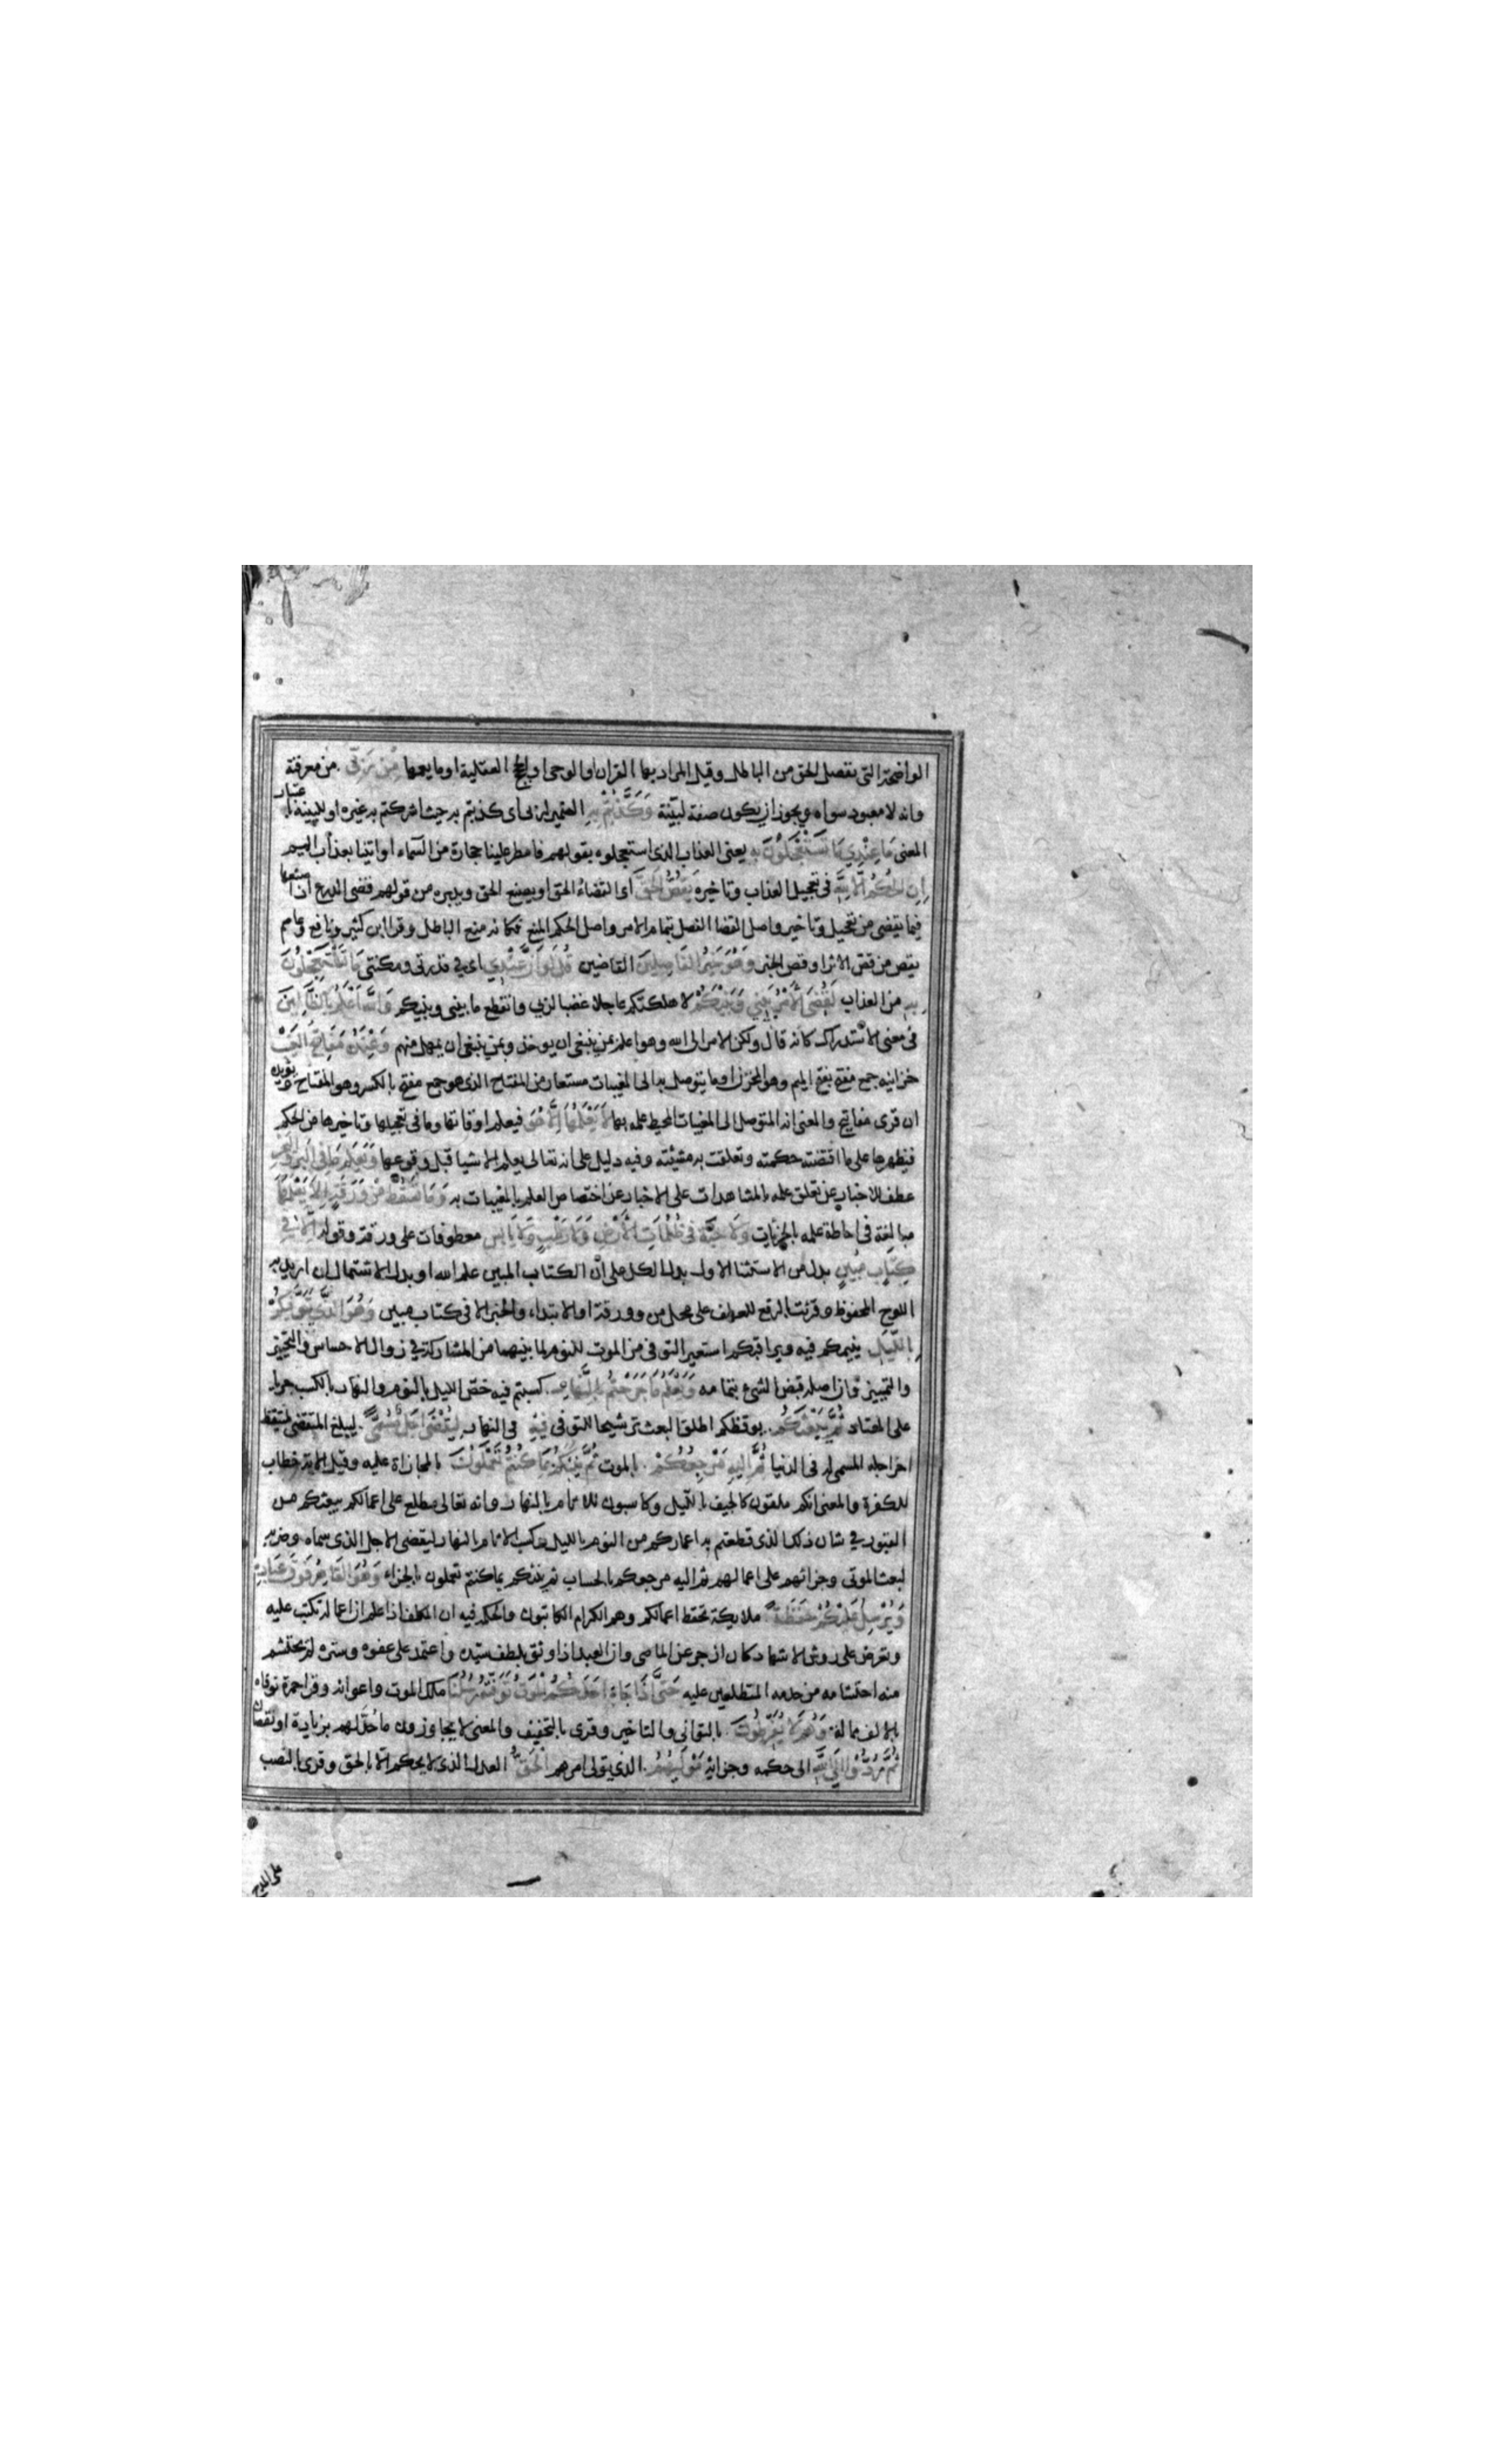 الواضحة التى تفصل الحق من الباطل وقيل المراد بها القران والوحى او الحجج العقلية او ما يعمها مِنْ رَبِّى من معرفته
وانه لا معبود سواه ويجوز ان يكون صفة لبيّنة وَكَذَّبْتُمْ بِهِ الضمير لربى اى كذبتم به حيث اشركتم به غيره او للبينة باعتبار
المعنى مَا عِنْدِي مَا تَسْتَعْجِلُونَ بِهِ يعنى العذاب الذى استعجلوه بقولهم فامطر علينا حجارة من السماء او اتينا بعذاب اليم
اِنِ الْحُكْمُ اِلَّا لِلَّهِ فى تعجيل العذاب وتاخيره يَقُصُّ الْحَقَّ اى القضاء الحق او يصنع الحق ويدبره من قولهم قضى الدرع اذا صنعها
فيما يقضى من تعجيل وتاخير واصل القضا الفصل بتمام الامر واصل الحكم المنع فكانه منع الباطل وقرا ابن كثير ونافع وعاصم
يقص من قص الاثر او قص الخبر وَهُوَ خَيْرُ الْفَاصِلِينَ القاضين قُلْ لَوْ اَنَّ عِنْدِي اى فى قدرتى ومكنتى مَا تَسْتَعْجِلُونَ
بِهِ من العذاب لَقُضِيَ الْاَمْرُ بَيْنِي وَبَيْنَكُمْ لاهلكتكم عاجلا غضبا لربى وانقطع ما بينى وبينكم وَاللَّهُ اَعْلَمُ بِالظَّالِمِينَ
فى معنى الاستدراك كانه قال ولكن الامر الى الله وهو اعلم بمن ينبغى ان يوخذ وبمن ينبغى ان يمهل منهم وَعِنْدَهُ مَفَاتِحُ الْغَيْبِ
خزاينه جمع مفتح بفتح الميم وهو المخزن او ما يتوصل به الى المغيبات مستعار من المفتاح الذى هو جمع مفتح بالكسر وهو المفتاح ويؤيده
ان قرى مفاتيح والمعنى انه المتوصل الى المغيبات المحيط علمه بها لَا يَعْلَمُهَا اِلَّا هُوَ فيعلم اوقاتها وما فى تعجيلها وتاخيرها من الحكم
فيظهرها على ما اقتضته حكمته وتعلقت به مشيئته وفيه دليل على انه تعالى يعلم الاشيا قبل وقوعها وَيَعْلَمُ مَا فِي الْبَرِّ وَالْبَحْرِ
عطف للاخبار عن تعلق علمه بالمشاهدات على الاخبار عن اختصاص العلم بالمغيبات به وَمَا تَسْقُطُ مِنْ وَرَقَةٍ اِلَّا يَعْلَمُهَا
مبالغة فى احاطة علمه بالجزئيات وَلَا حَبَّةٍ فِي ظُلُمَاتِ الْاَرْضِ وَلَا رَطْبٍ وَلَا يَابِسٍ معطوفات على ورقة وقوله اِلَّا فِي
كِتَابٍ مُبِينٍ بدل من الاستثنا الاول بدل الكل على ان الكتاب المبين علم الله او بدل الاشتمال ان اريد به
اللوح المحفوظ وقرئت بالرفع للعطف على محل من ورقة او الابتداء والخبر الا فى كتاب مبين وَهُوَ الَّذِي يَتَوَفَّيكُمْ
بِاللَّيْلِ ينيمكم فيه ويراقبكم استعير التوفى من الموت للنوم لما بينهما من المشاركة فى زوال الاحساس والتمييز
والتمييز فان اصله قبض الشئ بتمامه وَيَعْلَمُ مَا جَرَحْتُمْ بِالنَّهَارِ كسبتم فيه خص الليل بالنوم والنهار بالكسب جريا
على المعتاد ثُمَّ يَبْعَثُكُمْ يوقظكم اطلق البعث ترشيحا للتوفى فِيهِ فى النهار لِيُقْضَى اَجَلٌ مُسَمًّى ليبلغ المتيقظ
اخر اجله المسمى له فى الدنيا ثُمَّ اِلَيْهِ مَرْجِعُكُمْ بالموت ثُمَّ يُنَبِّئُكُمْ بِمَا كُنْتُمْ تَعْمَلُونَ بالمجازاة عليه وقيل الاية خطاب
للكفرة والمعنى انكم ملقون كالجيف بالليل وكاسبون للاثام بالنهار وانه تعالى مطلع على اعمالكم يبعثكم من
القبور فى شان ذلك الذى قطعتم به اعماركم من النوم بالليل وكسب الاثام بالنهار ليقضى الاجل الذى سماه وضربه
لبعث الموتى وجزائهم على اعمالهم ثم اليه مرجعكم بالحساب ثم ينبئكم بما كنتم تعملون بالجزاء وَهُوَ الْقَاهِرُ فَوْقَ عِبَادِهِ
وَيُرْسِلُ عَلَيْكُمْ حَفَظَةً ملايكة تحفظ اعمالكم وهم الكرام الكاتبون والحكمة فيه ان المكلف اذا علم ان اعماله تكتب عليه
وتعرض على روس الاشهاد كان ازجر عن المعاصى وان العبد اذا وثق بلطف سيده واعتمد على عفوه وستره لم يحتشم
منه احتشامه من خدمه المتطلعين عليه حَتَّى اِذَا جَاءَ اَحَدَكُمُ الْمَوْتُ تَوَفَّتْهُ رُسُلُنَا ملك الموت واعوانه وقرا حمزة توفاه
بالالف ممالة وَهُمْ لَا يُفَرِّطُونَ بالتوانى والتاخير وقرى بالتخفيف والمعنى لا يجاوزون ما حد لهم بزيادة او نقصان
ثُمَّ رُدُّوا اِلَى اللَّهِ الى حكمه وجزائه مَوْلَيهُمُ الذى يتولى امرهم الْحَقِّ العدل الذى لا يحكم الا بالحق وقرى بالنصب
على المدح